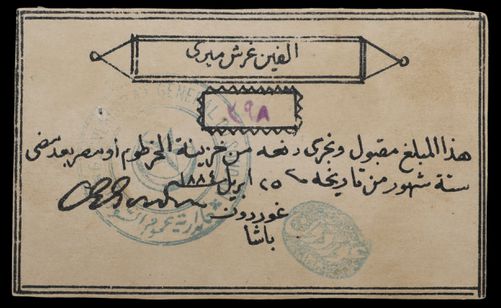 الفين غرش ميرى
٢٩٨
هذا المبلغ مقبول ونجرى دفعه من خزينة الخرطوم او مصر بعد مضى
ستة شهور من تاريخه ٢٥ ابريل ١٨٨٤م
غوردون
باشا